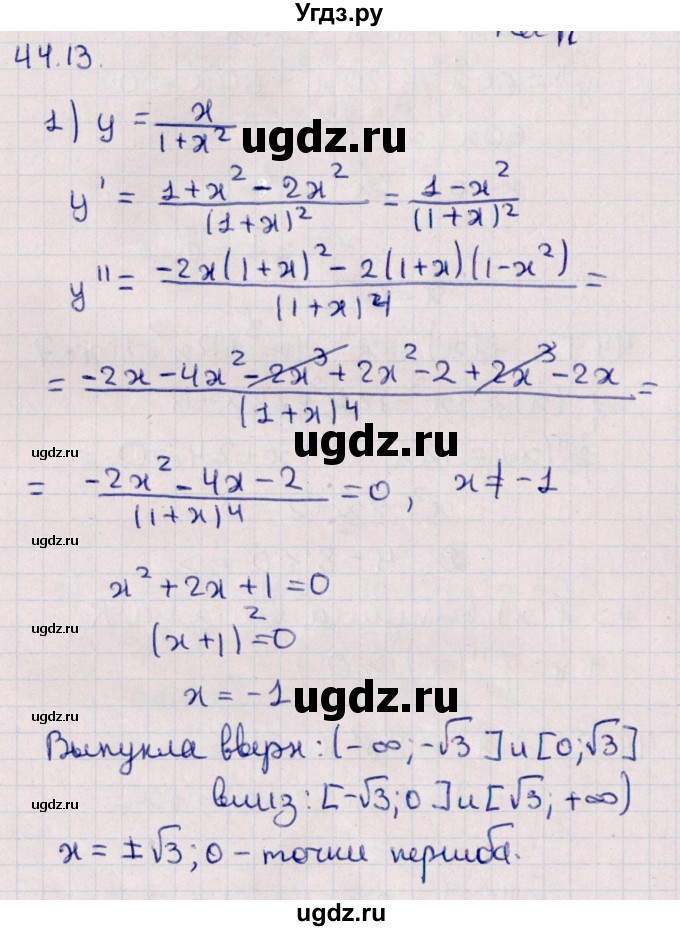 Угдз.ру
44.13.
1) y = x/(1+x²)
ugdz.ru
y' = (1+x²-2x²)/(1+x)² = (1-x²)/(1+x)²
y'' = (-2x(1+x)²-2(1+x)(1-x²))/(1+x)⁴ =
= (-2x-4x²-2x³+2x²-2+2x³-2x)/(1+x)4 =
ugdz.ru
ugdz.ru
= (-2x²-4x-2)/(1+x)4 = 0, x ≠ -1
ugdz.ru
x²+2x+1=0
ugdz.ru
(x+1)²=0
x = -1
ugdz.ru
ugdz.ru
Выпукла вверх: (-∞; -√3] и [0; √3]
вниз: [-√3; 0] и [√3; +∞)
ugdz.ru
x = ±√3; 0 - точки перегиба.
ugdz.ru
ugdz.ru